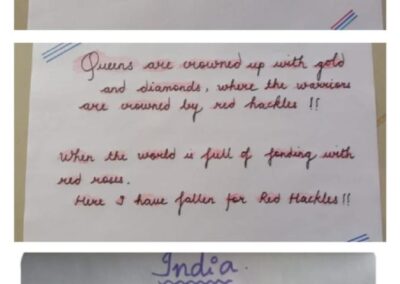 Queens are crowned up with gold
and diamonds, where the warriors
are crowned by red hackles !!
When the world is full of fonding with
red roses.
Here I have fallen for Red Hackles!!
India.